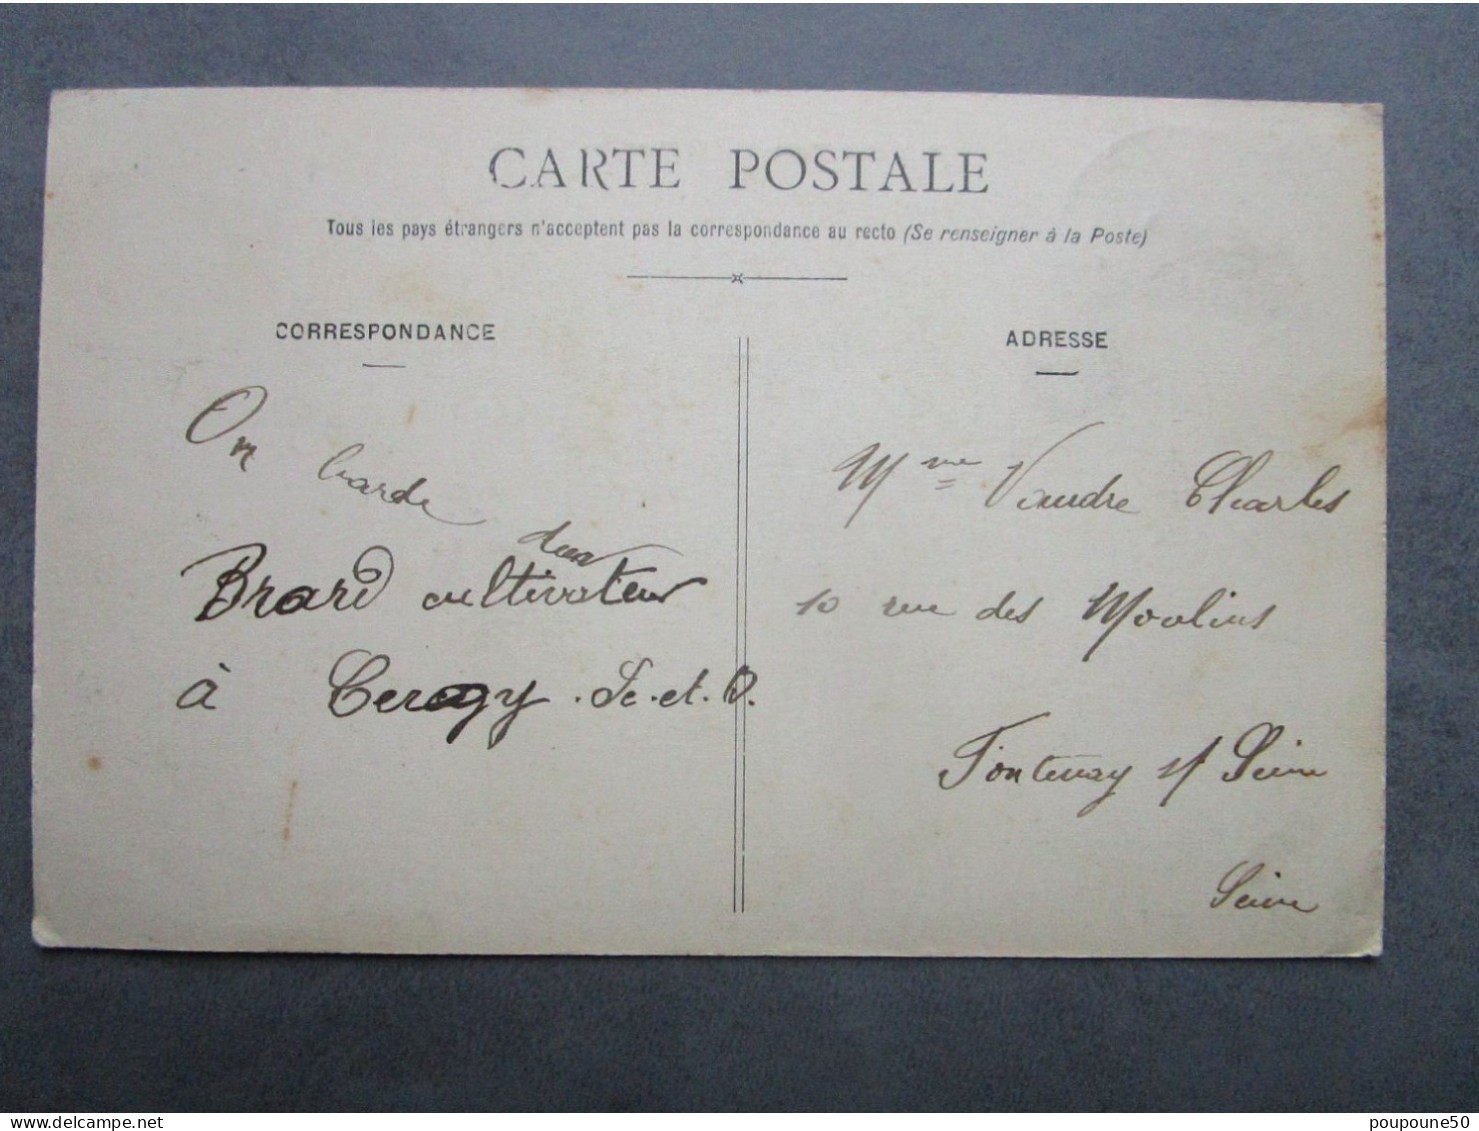 CARTE POSTALE
Tous les pays étrangers n'acceptent pas la correspondance au recto (Se renseigner à la Poste)
CORRESPONDANCE
On barde
dur
Brard cultivateur
à Cergy. Se.et.O.
ADRESSE
Mme Vaudre Charles
10 rue des Moulins
Fontenay s/ Seine
Seine
www.delcampe.net
poupoune50